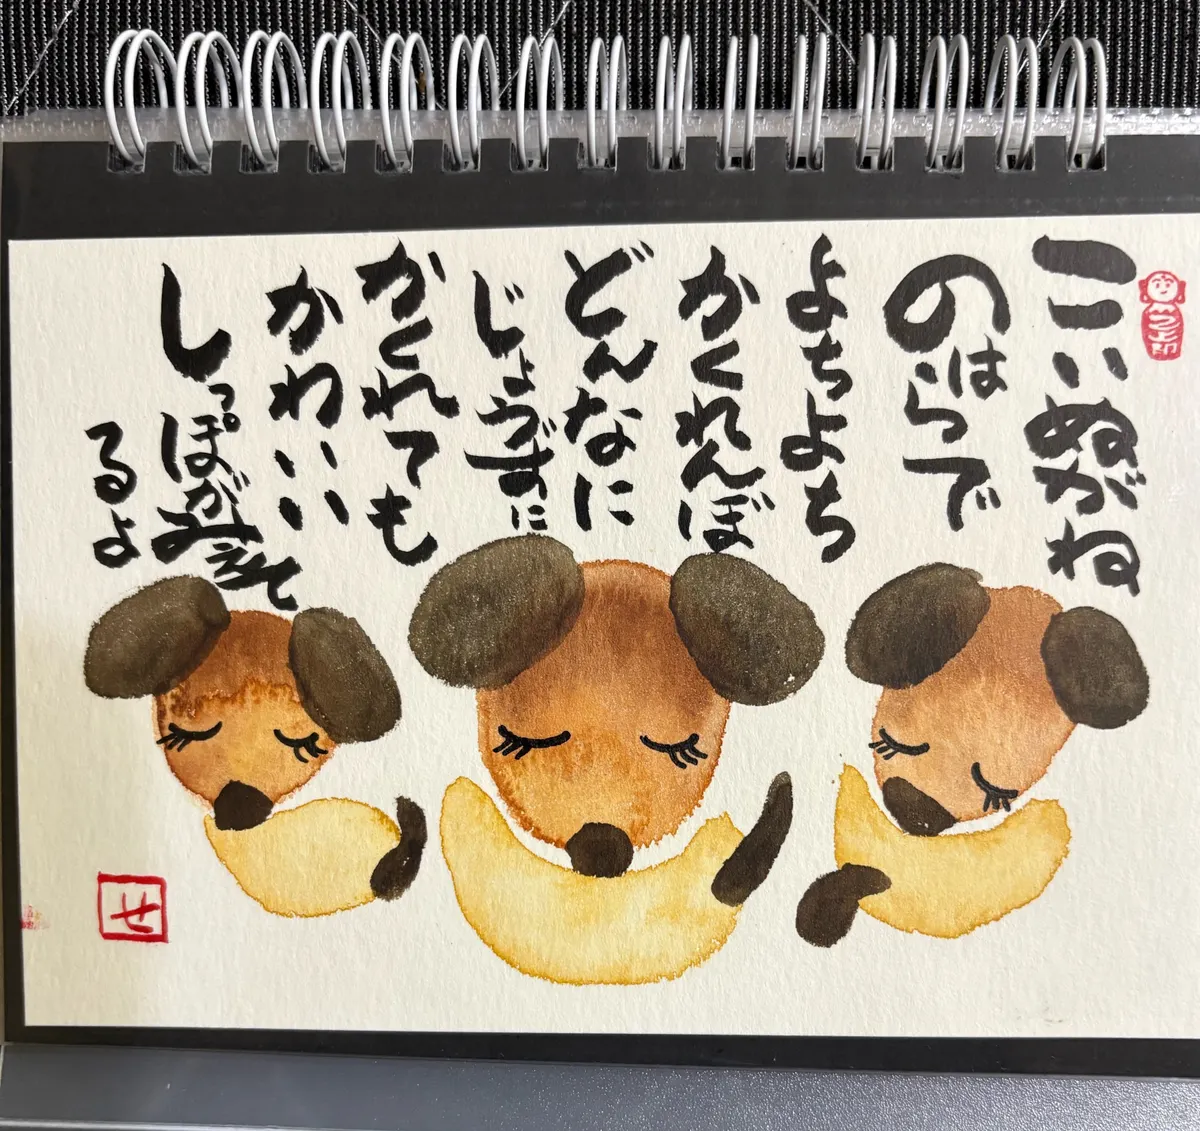 こいぬがね
のはらで
よちよち
かくれんぼ
どんなに
じょうずに
かくれても
かわいい
しっぽがみえて
るよ
せ